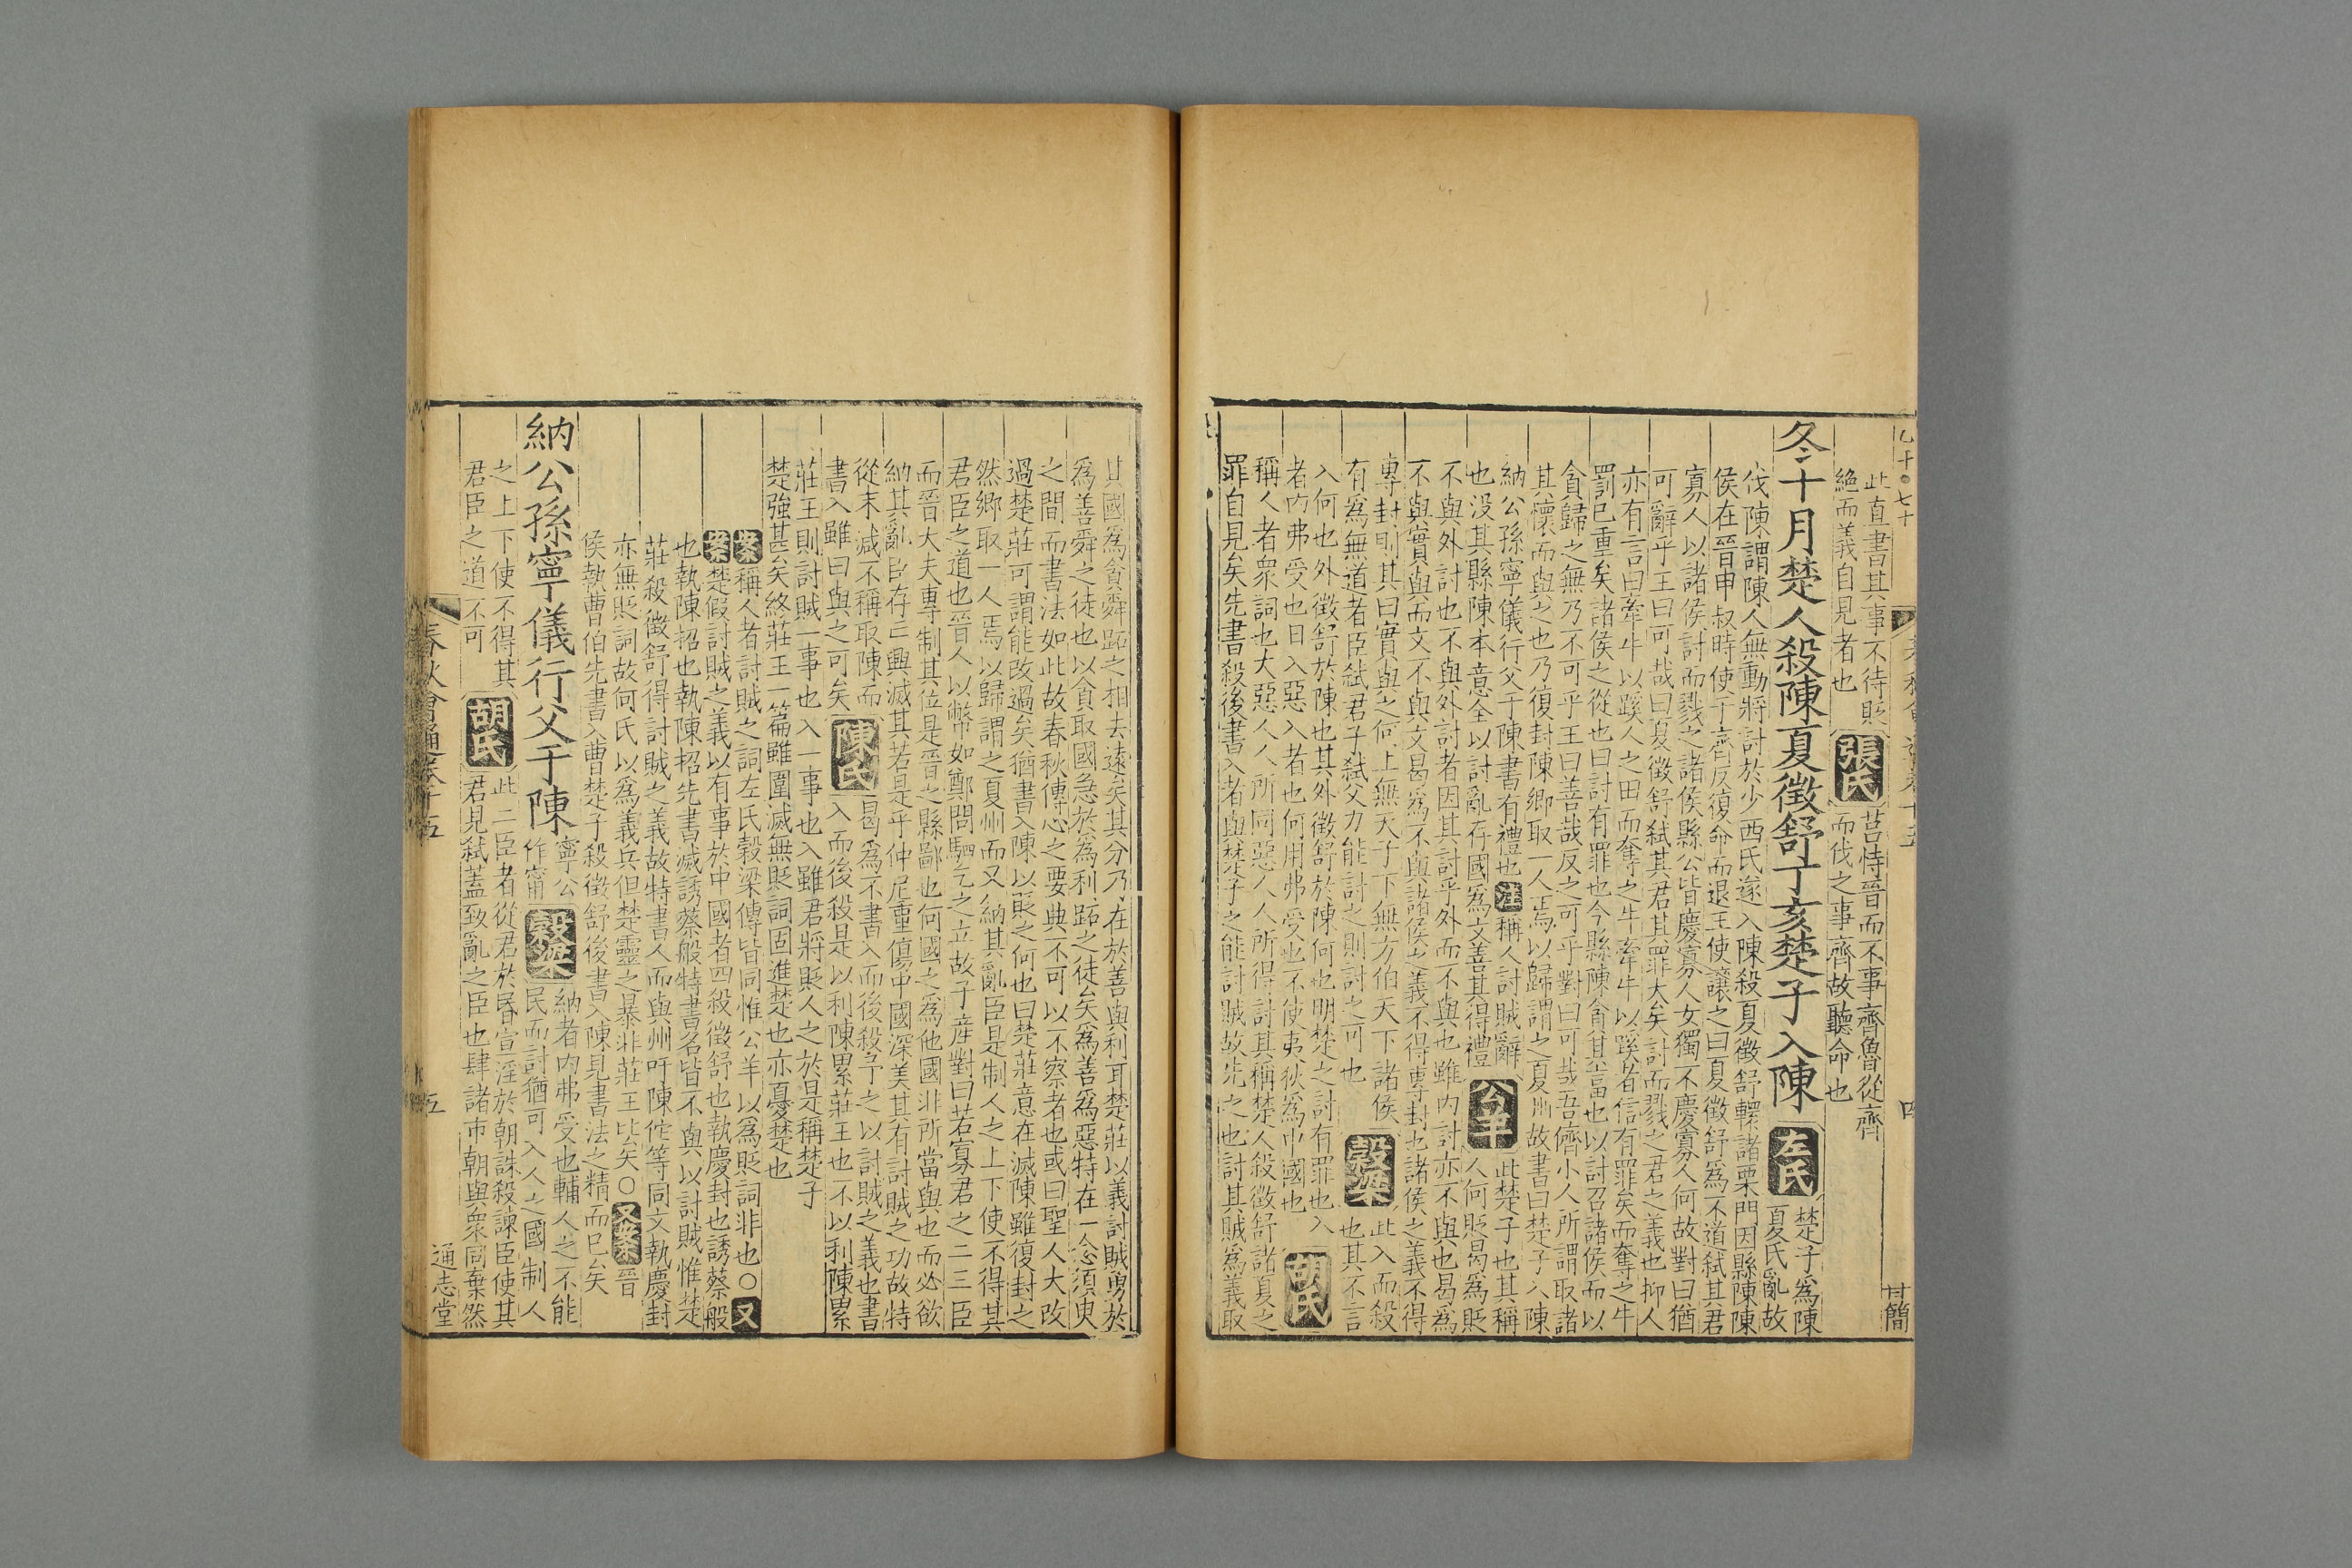 此直書其事不待貶
絕而義自見者也
張氏
莒恃晉而不事齊魯從齊
而伐之事齊故聽命也
冬十月楚人殺陳夏徵舒丁亥楚子入陳
左氏
楚子為陳
夏氏亂故
伐陳謂陳人無動將討於少西氏遂入陳殺夏徵舒轘諸栗門因縣陳陳
侯在晉申叔時使于齊反復命而退王使讓之曰夏徵舒為不道弒其君
寡人以諸侯討而戮之諸侯縣公皆慶寡人女獨不慶寡人何故對曰猶
可辭乎王曰可哉曰夏徵舒弒其君其罪大矣討而戮之君之義也抑人
亦有言曰牽牛以蹊人之田而奪之牛牽牛以蹊者信有罪矣而奪之牛
罰已重矣諸侯之從也曰討有罪也今縣陳貪其富也以討召諸侯而以
貪歸之無乃不可乎王曰善哉反之可乎對曰可哉吾儕小人所謂取諸
其懷而與之也乃復封陳鄉取一人焉以歸謂之夏州故書曰楚子入陳
納公孫寧儀行父于陳書有禮也注稱人討賊辭
也沒其縣陳本意全以討亂存國為文善其得禮
公羊
此楚子也其稱
人何貶曷為貶
不與外討也不與外討者因其討乎外而不與也雖內討亦不與也曷為
不與實與而文不與文曷為不與諸侯之義不得專封也諸侯之義不得
專封則其曰實與之何上無天子下無方伯天下諸侯
有為無道者臣弒君子弒父力能討之則討之可也
穀梁
此入而殺
也其不言
入何也外徵舒於陳也其外徵舒於陳何也明楚之討有罪也入
者內弗受也日入惡入者也何用弗受也不使夷狄為中國也
胡氏
稱人者眾詞也大惡人人所同惡人人所得討其稱楚人殺徵舒諸夏之
罪自見矣先書殺後書入者與楚子之能討賊故先之也討其賊為義取
四
甘簡
其國為貪舜跖之相去遠矣其分乃在於善與利耳楚莊以義討賊勇於
為善舜之徒也以貪取國急於為利跖之徒矣為善為惡特在一念須臾
之間而書法如此故春秋傳心之要典不可以不察者也或曰聖人大改
過楚莊可謂能改過矣猶書入陳以貶之何也曰楚莊意在滅陳雖復封之
然鄉取一人焉以歸謂之夏州而又納其亂臣是制人之上下使不得其
君臣之道也晉人以幣如鄭問駟乞之立故子產對曰若寡君之二三臣
而晉大夫專制其位是晉之縣鄙也何國之為他國非所當與也而必欲
納其亂臣存亡興滅其若是乎仲尼重傷中國深美其有討賊之功故特
從末減不稱取陳而
書入雖曰與之可矣
陳氏
曷為不書入而後殺予之以討賊之義也書
入而後殺是以利陳累莊王也不以利陳累
莊王則討賊一事也入一事也入雖君將貶人之於是稱楚子
楚強甚矣終莊王一篇雖圍滅無貶詞固進楚也亦憂楚也
纂案稱人者討賊之詞左氏穀梁傳皆同惟公羊以為貶詞非也〇又
案楚假討賊之義以有事於中國者四殺徵舒也執慶封也誘蔡般
也執陳招也執陳招先書滅誘蔡般特書名皆不與以討賊惟楚
莊殺徵舒得討賊之義故特書人而與州吁陳佗等同文執慶封
亦無貶詞故何氏以為義兵但楚靈之暴非莊王比矣〇又纂案晉
侯執曹伯先書入曹楚子殺徵舒後書入陳見書法之精而已矣
納公孫寧儀行父于陳
寧公
作甯
穀梁
納者內弗受也輔人之不能
民而討猶可入人之國制人
之上下使不得其
君臣之道不可
胡氏
此二臣者從君於昏宣淫於朝誅殺諫臣使其
君見弒蓋致亂之臣也肆諸市朝與眾同棄然
春秋會通卷十五
五
通志堂